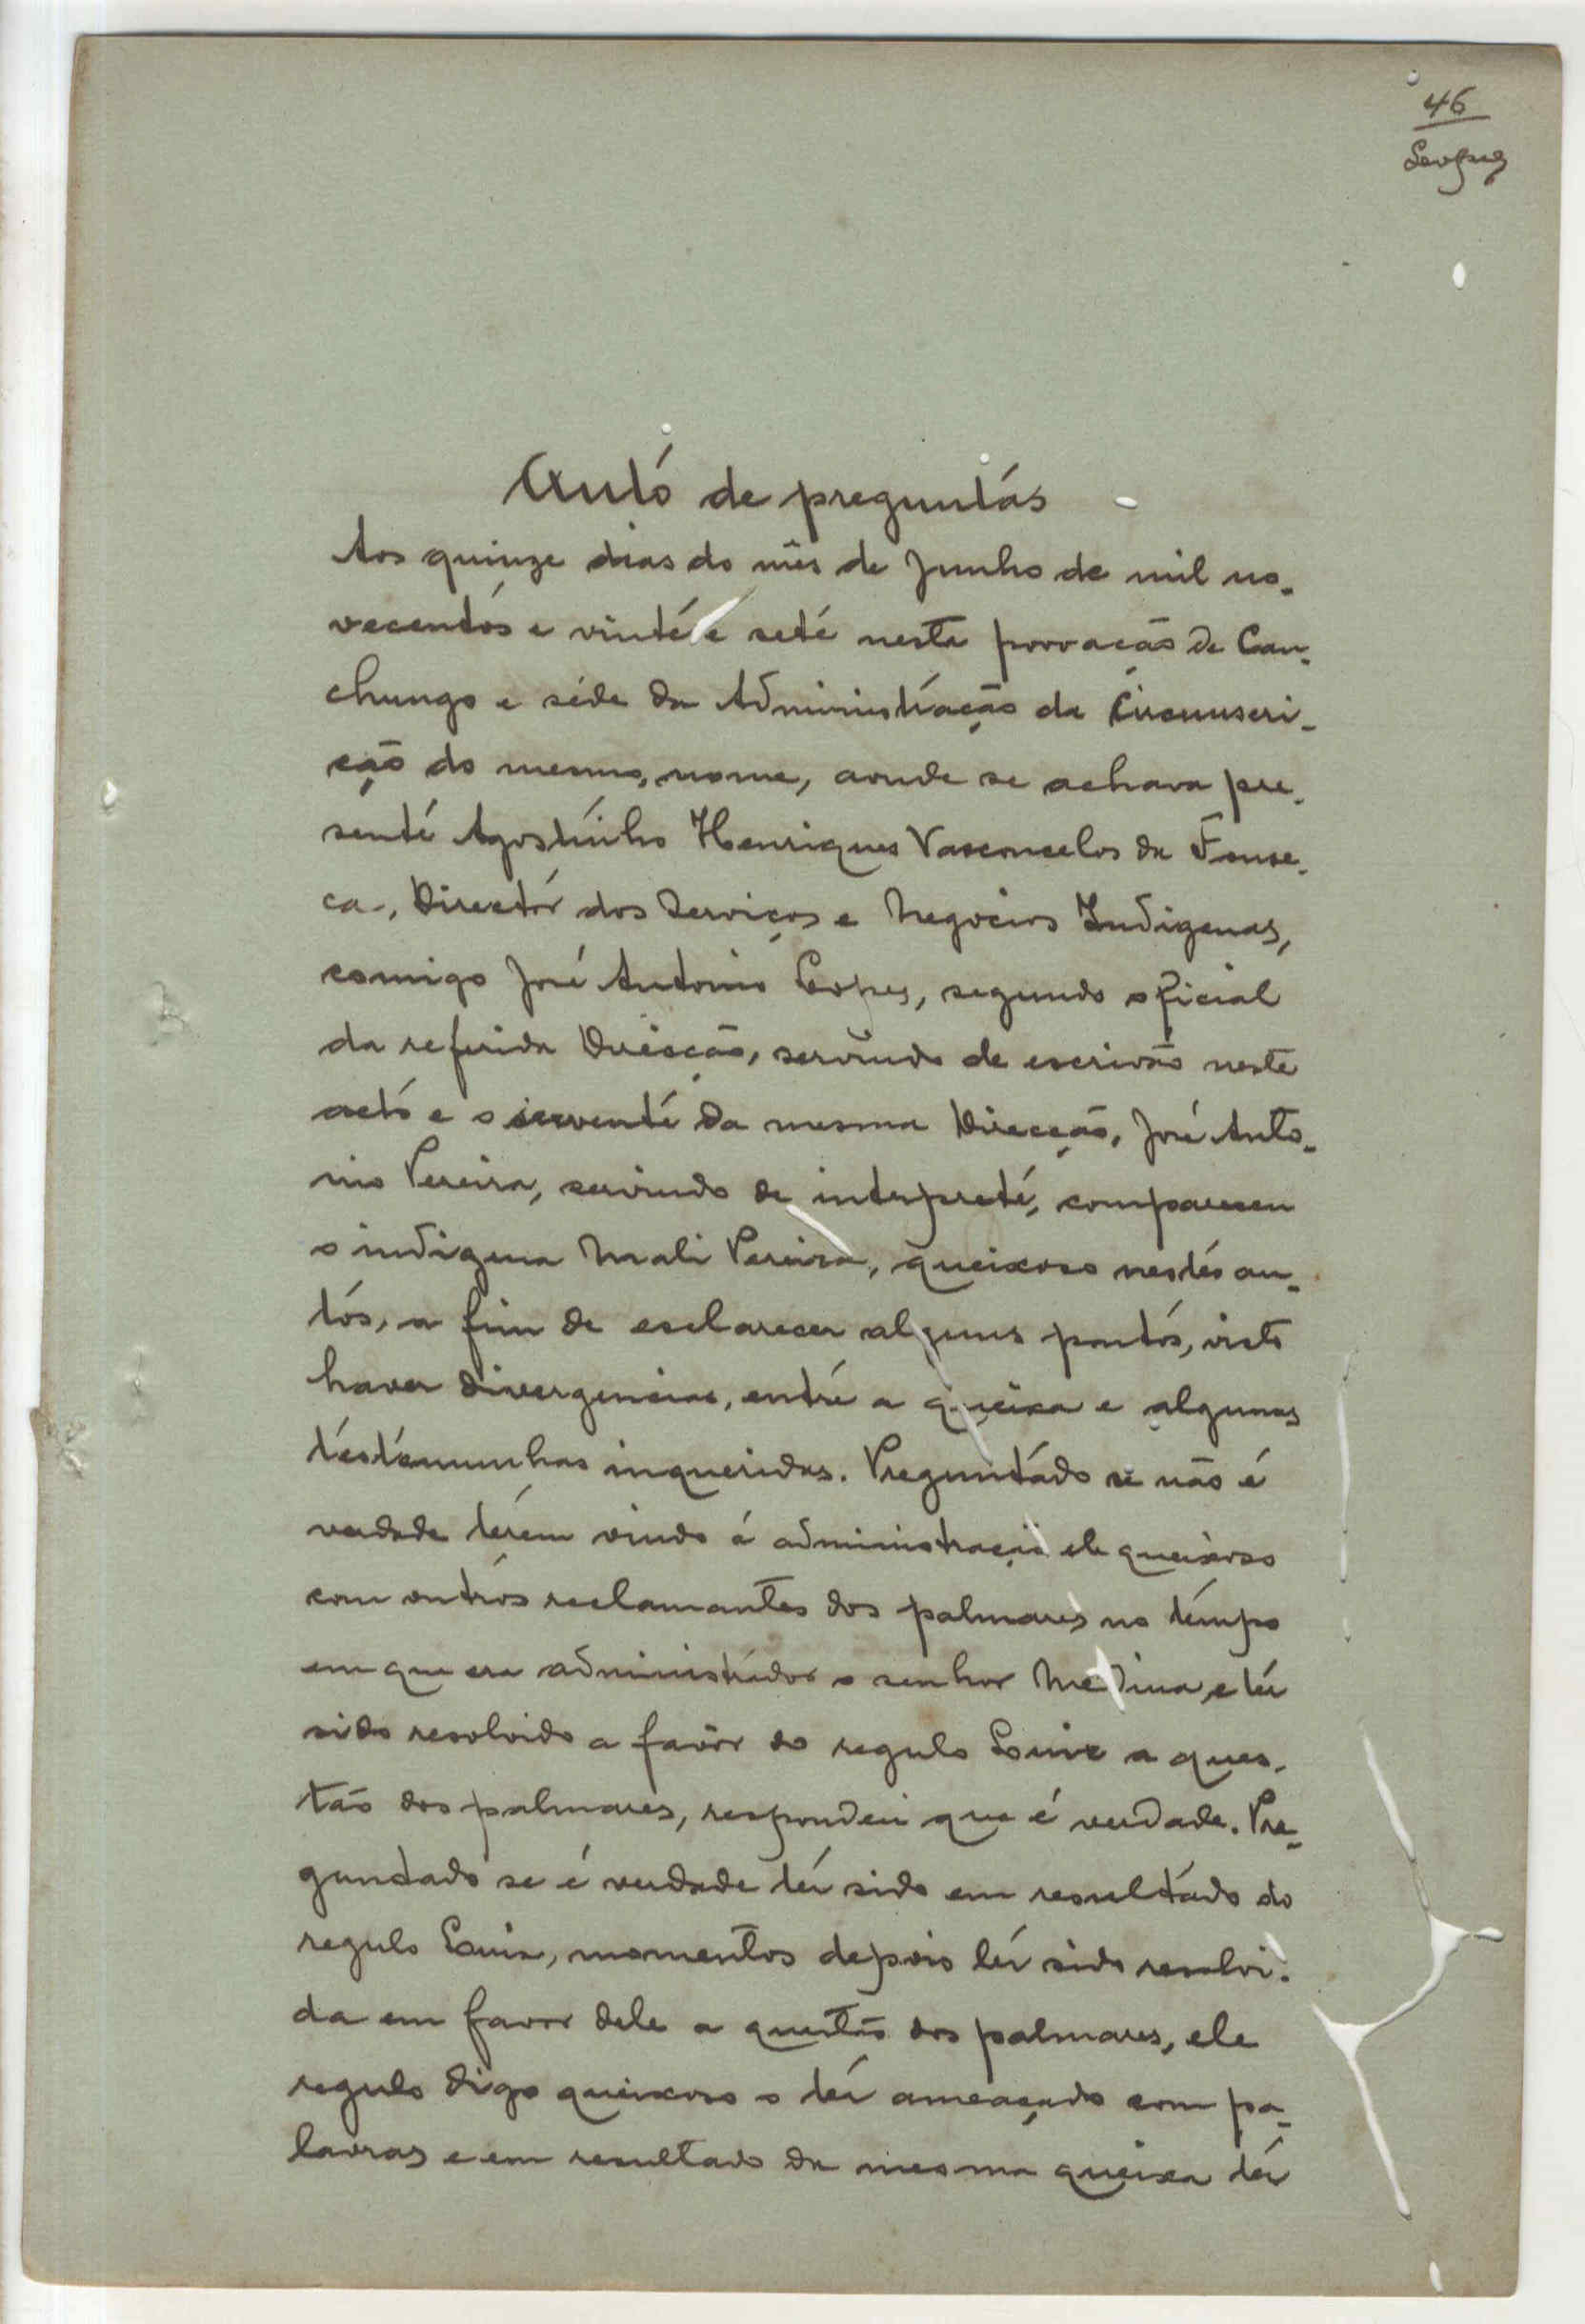 46
Auto de preguntas
Aos quinze dias do mês de Junho de mil no-
vecentos e vinte e sete nesta povoação de Can-
chungo e séde da Administração da Circunscri-
ção do mesmo nome, aonde se achava pre-
sente Agostinho Henriques Vasconcelos da Fonse-
ca, Director dos Serviços e Negocios Indigenas,
comigo José Antonio Lopes, segundo oficial
da referida Direcção, servindo de escrivão neste
acto e o servente da mesma Direcção, José Anto-
nio Pereira, servindo de interprete, compareceu
o indigena Mali Pereira, queixoso nestes au-
tos, a fim de esclarecer alguns pontos, visto
haver divergencias, entre a queixa e algumas
testemunhas inqueridas. Preguntado se não é
verdade terem vindo á administração ele queixoso
com outros reclamantes dos palmares no tempo
em que era administrador o senhor Medina, e ter
sido resolvido a favôr do regulo Luiz a ques-
tão dos palmares, respondeu que é verdade. Pre-
guntado se é verdade ter sido em resultado do
regulo Luiz, momentos depois ter sido resolvi-
da em favor dele a questão dos palmares, ele
regulo digo queixoso o ter ameaçado com pa-
lavras e em resultado da mesma queixa ter